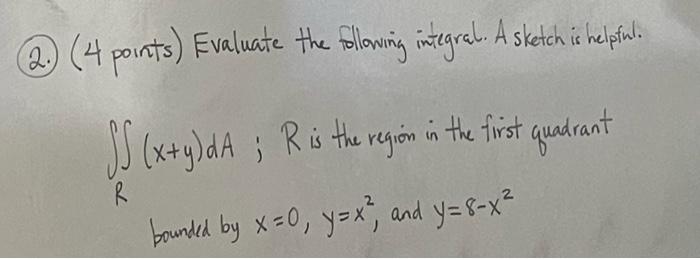 2. (4 points) Evaluate the following integral. A sketch is helpful.
∬_R (x+y)dA ; R is the region in the first quadrant
bounded by x=0, y=x², and y=8-x²